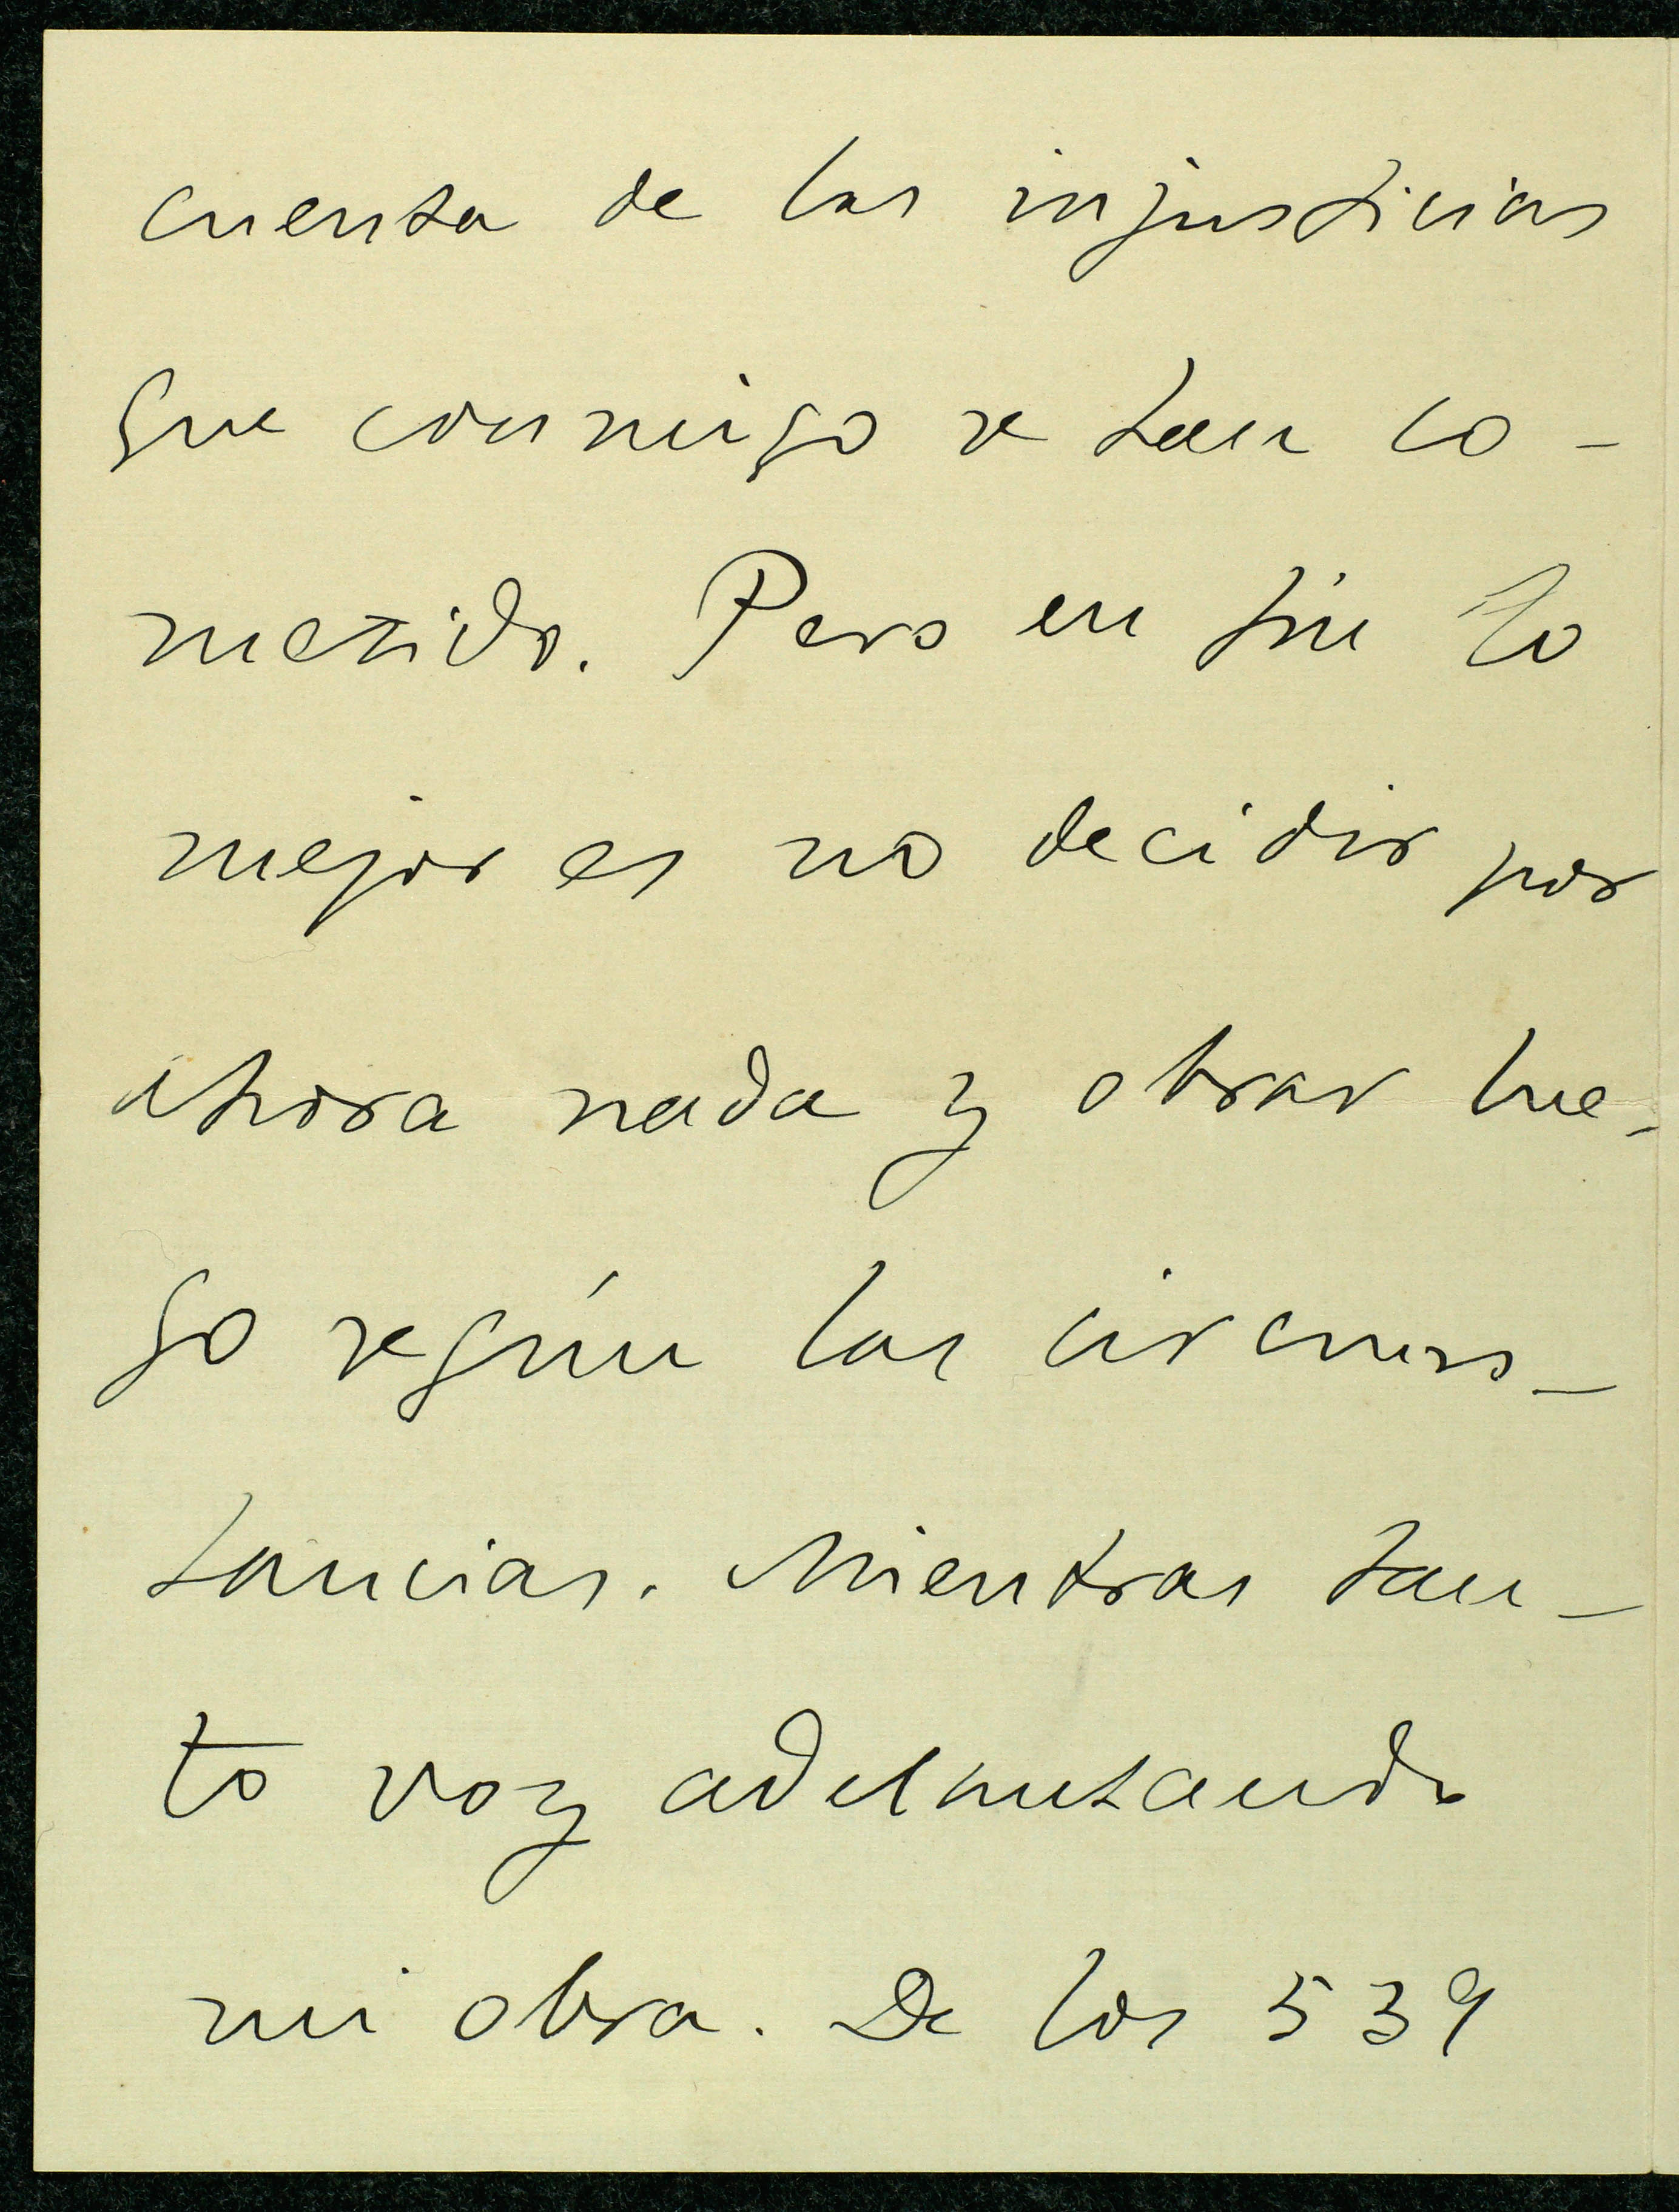 cuenta de las injusticias
que conmigo se han co-
metido. Pero en fin lo
mejor es no decidir por
ahora nada y obrar lue-
go según las circuns-
tancias. Mientras tan-
to voy adelantando
mi obra. De los 539